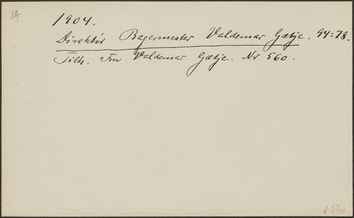 1904.
Direktör Bagermester Valdemar Gætje. 94=78.
Tilh. Fru Valdemar Gætje. Nr 560.